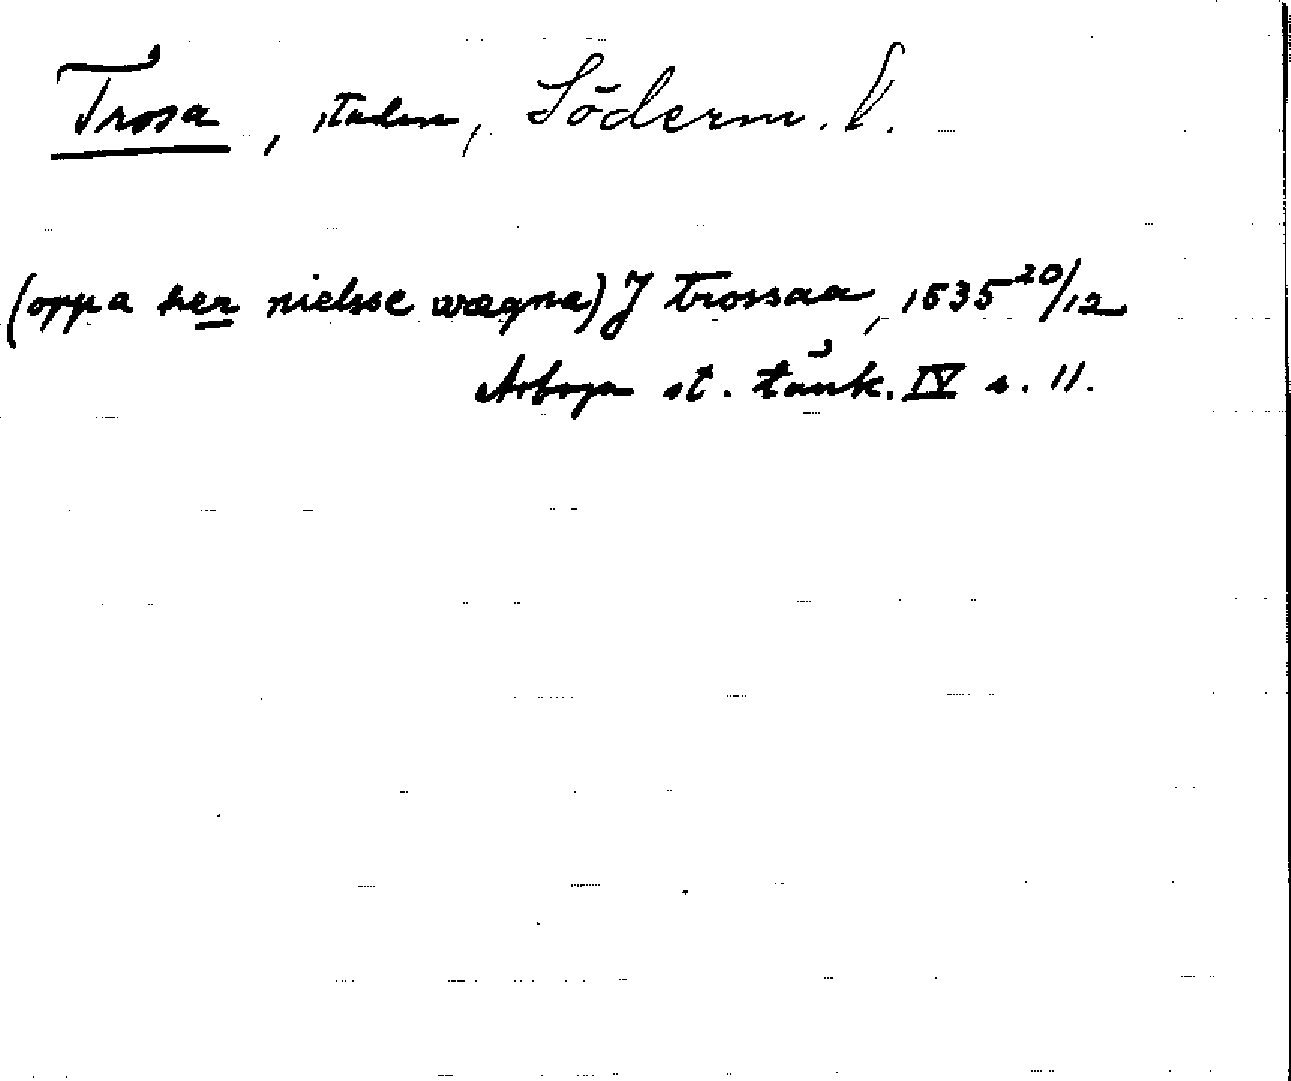 Trosa, staden, Söderm. l.
(opp a her nielsse wægna) J trossaa, 1535 20/12
Arboga st. tänk. IV s. 11.